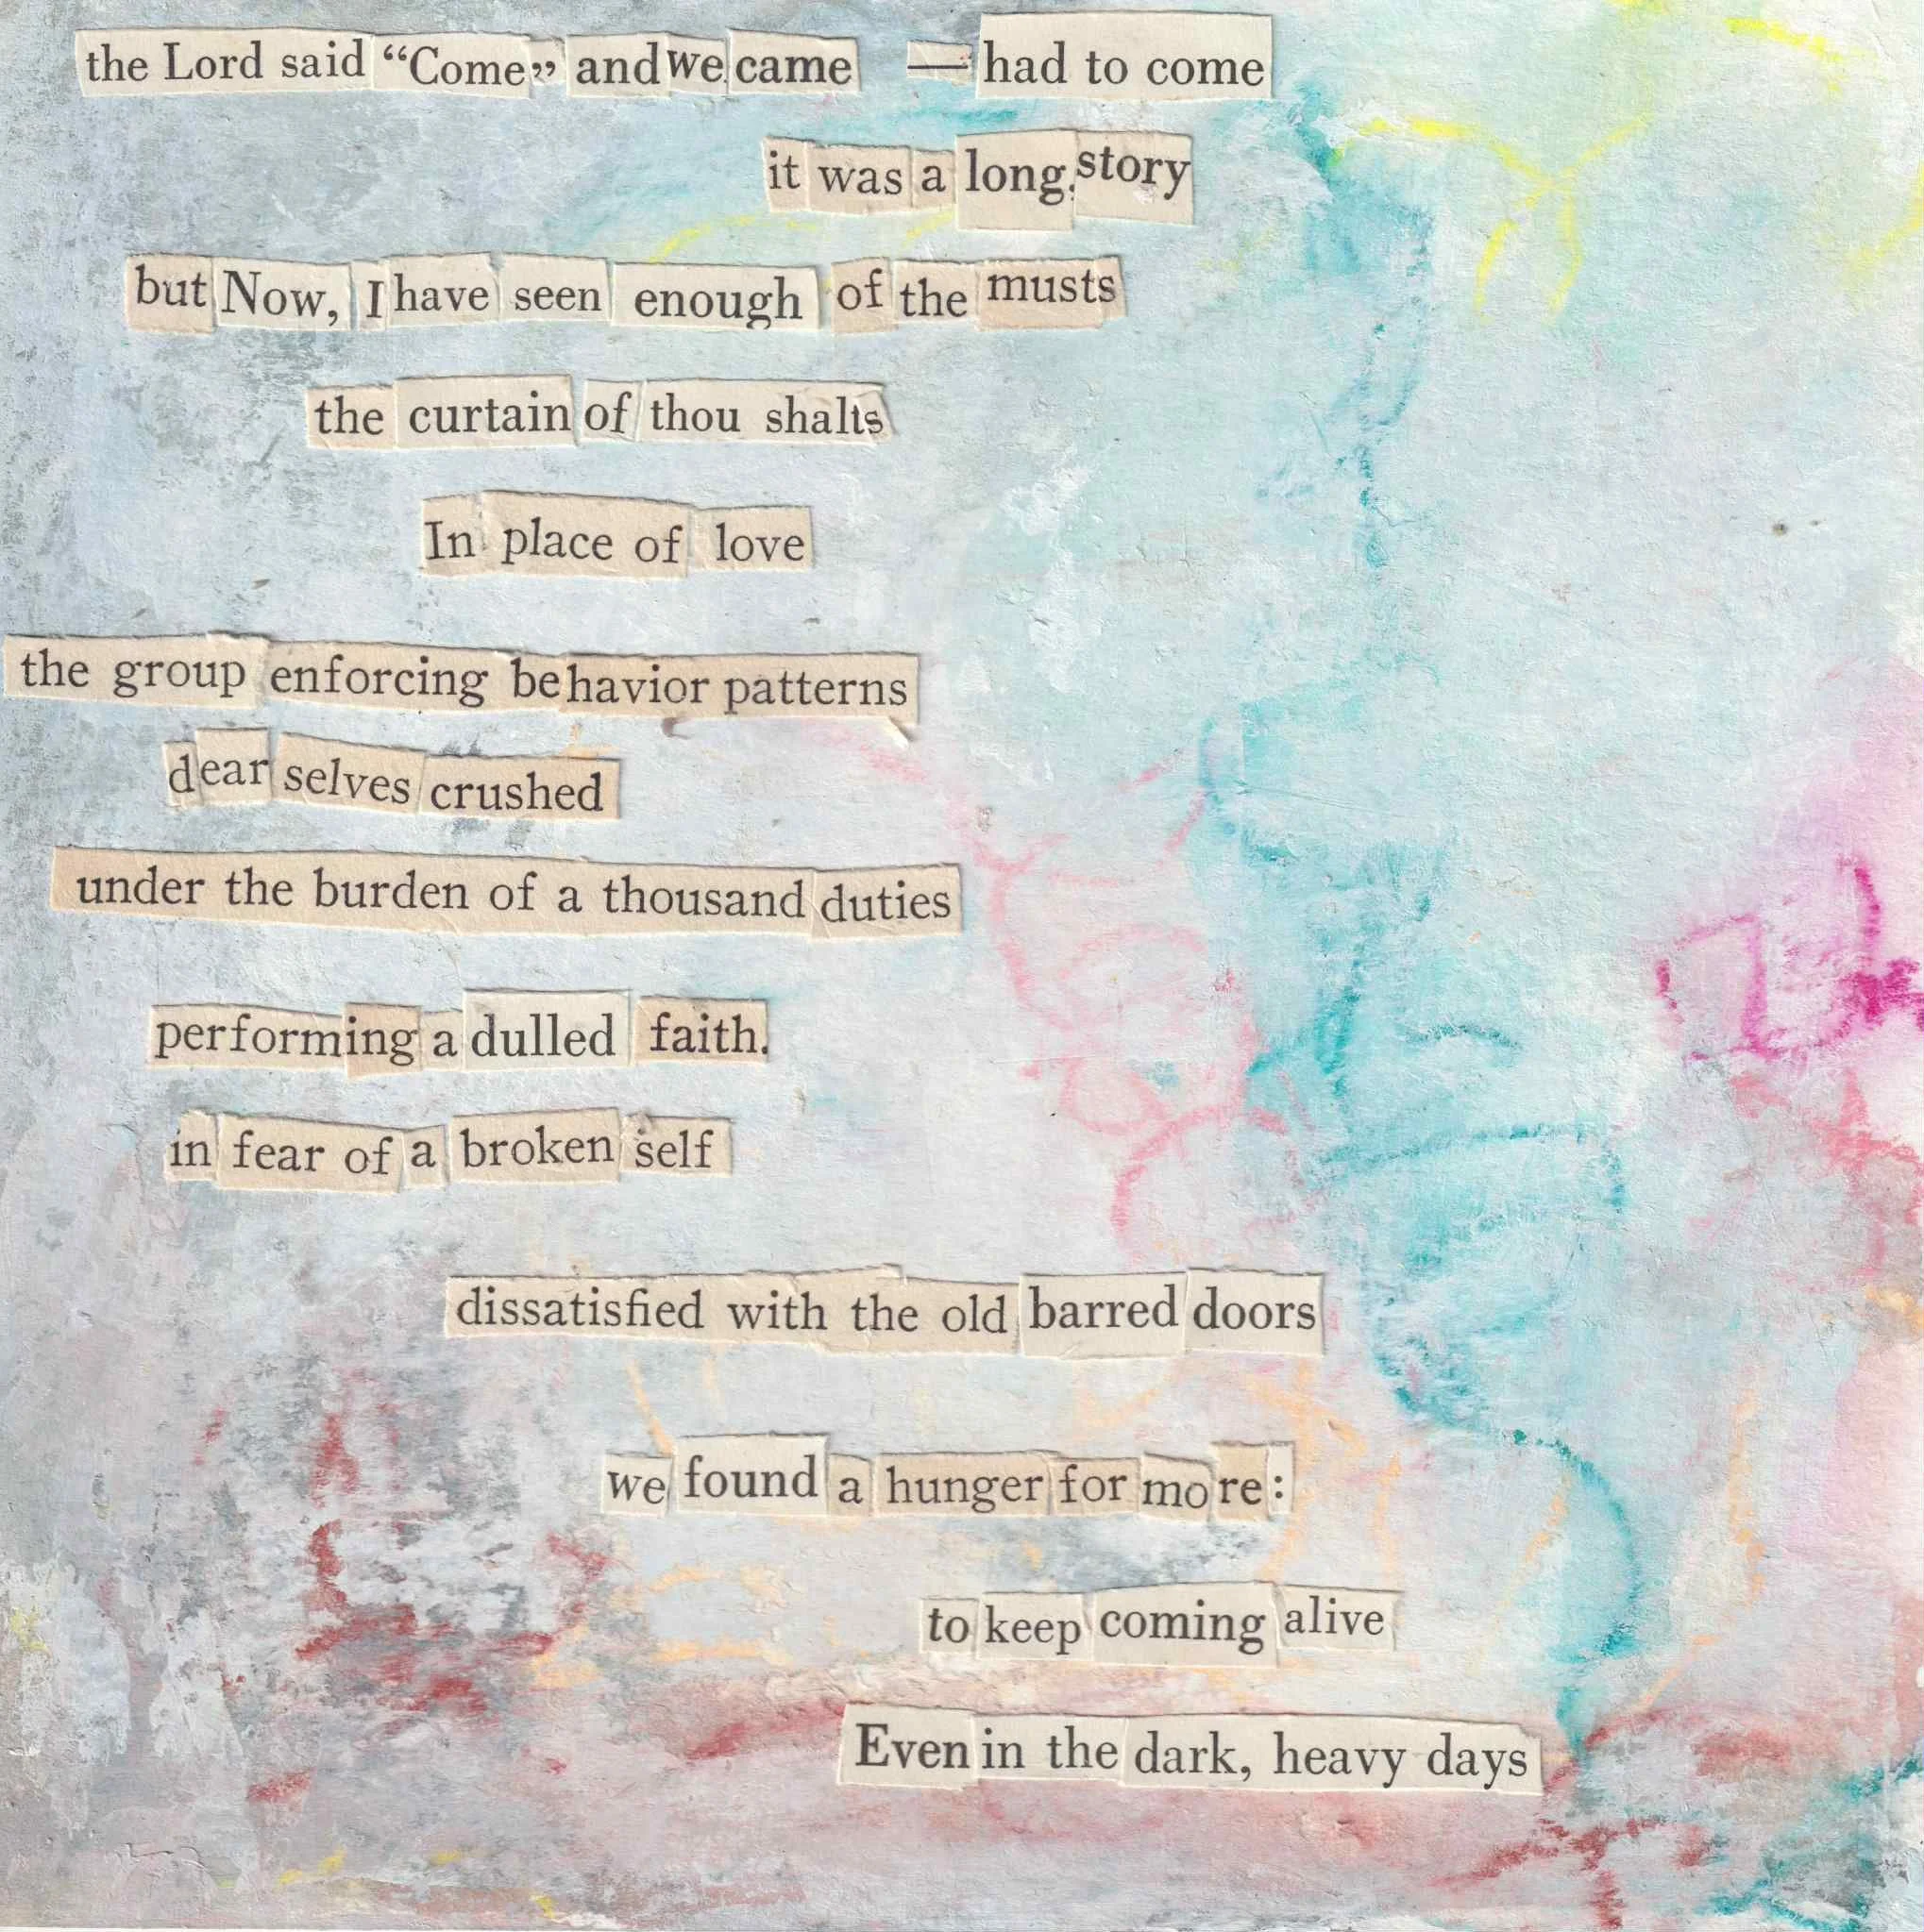 the Lord said “Come” and we came — had to come
it was a long story
but Now, I have seen enough of the musts
the curtain of thou shalts
In place of love
the group enforcing behavior patterns
dear selves crushed
under the burden of a thousand duties
performing a dulled faith.
in fear of a broken self
dissatisfied with the old barred doors
we found a hunger for more:
to keep coming alive
Even in the dark, heavy days